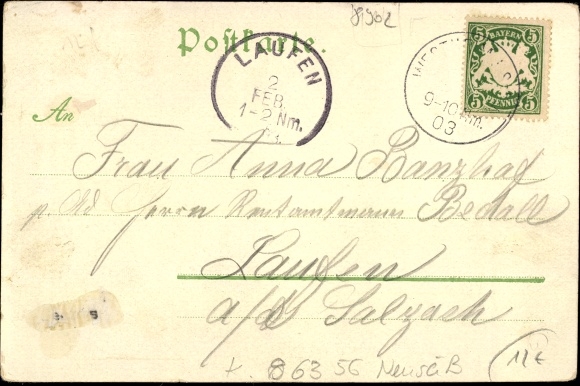 81902
Postkarte.
LAUFEN
2
FEB.
1-2 Nm.
03.
BAYERN
5 5
5 PFENNIG 5
9-10 Nm.
03
An
Frau Anna Banzhaf
p. Ad Herrn Rentamtmann Bedall
Laufen
a/d Salzach
K. 86356 Neusäß
11€